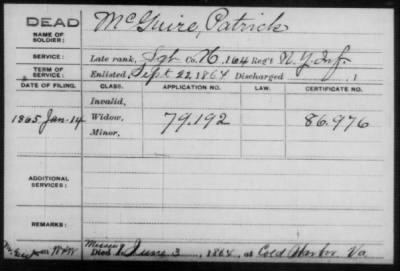 DEAD McGuire, Patrick
NAME OF SOLDIER:
SERVICE: Late rank, Sgt Co. H, 164 Reg't N.Y. Inf.
TERM OF SERVICE: Enlisted Sept 22, 1864 Discharged , 1
DATE OF FILING. CLASS. APPLICATION NO. LAW. CERTIFICATE NO.
Invalid,
1865 Jan-14 Widow, 79.192 86.976
Minor,
ADDITIONAL SERVICES:
REMARKS:
Died June 3, 1864, at Cold Harbor Va